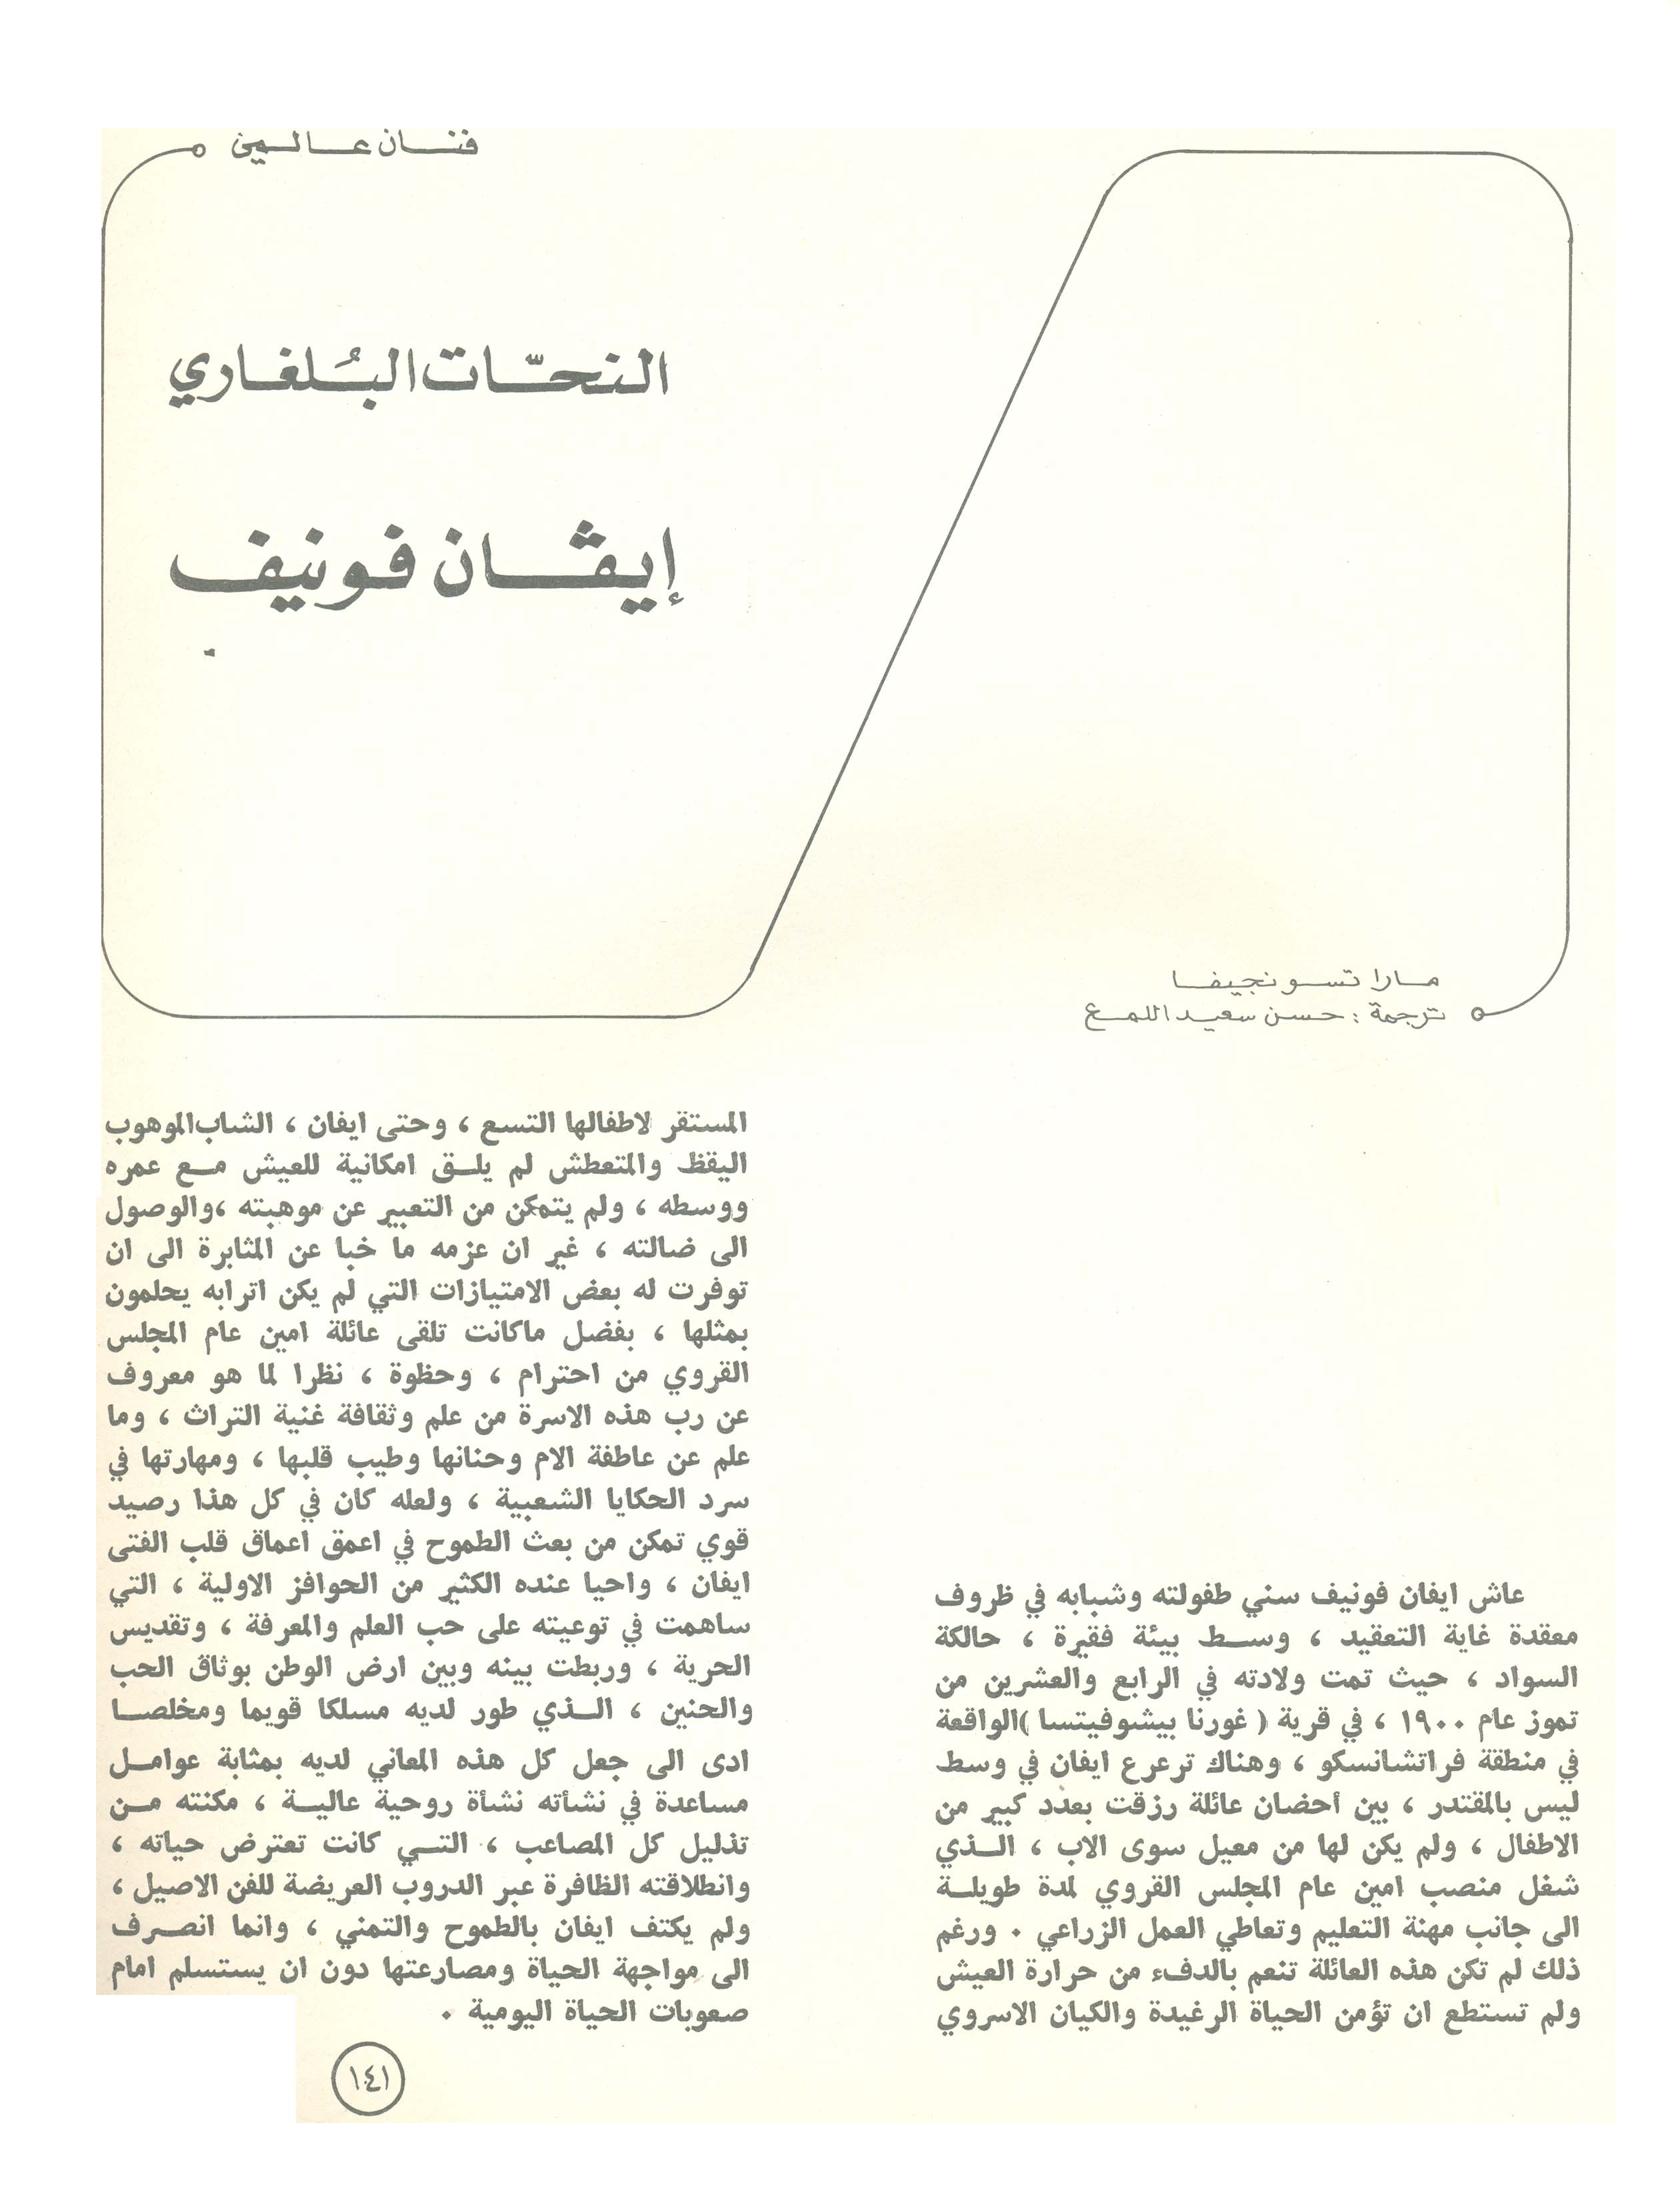 فنان عالمي
النحّات البُلغاري
إيڤان فونيف
مارا تسونجيفا
ترجمة : حسن سعيد اللمع
عاش ايفان فونيف سني طفولته وشبابه في ظروف
معقدة غاية التعقيد ، وسط بيئة فقيرة ، حالكة
السواد ، حيث تمت ولادته في الرابع والعشرين من
تموز عام ١٩٠٠ ، في قرية ( غورنا بيشوفيتسا )الواقعة
في منطقة فراتشانسكو ، وهناك ترعرع ايفان في وسط
ليس بالمقتدر ، بين أحضان عائلة رزقت بعدد كبير من
الاطفال ، ولم يكن لها من معيل سوى الاب ، الذي
شغل منصب امين عام المجلس القروي لمدة طويلة
الى جانب مهنة التعليم وتعاطي العمل الزراعي . ورغم
ذلك لم تكن هذه العائلة تنعم بالدفء من حرارة العيش
ولم تستطع ان تؤمن الحياة الرغيدة والكيان الاسروي
المستقر لاطفالها التسع ، وحتى ايفان ، الشاب الموهوب
اليقظ والمتعطش لم يلق امكانية للعيش مع عمره
ووسطه ، ولم يتمكن من التعبير عن موهبته ،والوصول
الى ضالته ، غير ان عزمه ما خبا عن المثابرة الى ان
توفرت له بعض الامتيازات التي لم يكن اترابه يحلمون
بمثلها ، بفضل ماكانت تلقى عائلة امين عام المجلس
القروي من احترام ، وحظوة ، نظرا لما هو معروف
عن رب هذه الاسرة من علم وثقافة غنية التراث ، وما
علم عن عاطفة الام وحنانها وطيب قلبها ، ومهارتها في
سرد الحكايا الشعبية ، ولعله كان في كل هذا رصيد
قوي تمكن من بعث الطموح في اعمق اعماق قلب الفتى
ايفان ، واحيا عنده الكثير من الحوافز الاولية ، التي
ساهمت في توعيته على حب العلم والمعرفة ، وتقديس
الحرية ، وربطت بينه وبين ارض الوطن بوثاق الحب
والحنين ، الذي طور لديه مسلكا قويما ومخلصا
ادى الى جعل كل هذه المعاني لديه بمثابة عوامل
مساعدة في نشأته نشأة روحية عالية ، مكنته من
تذليل كل المصاعب ، التي كانت تعترض حياته ،
وانطلاقته الظافرة عبر الدروب العريضة للفن الاصيل ،
ولم يكتف ايفان بالطموح والتمني ، وانما انصرف
الى مواجهة الحياة ومصارعتها دون ان يستسلم امام
صعوبات الحياة اليومية .
١٤١